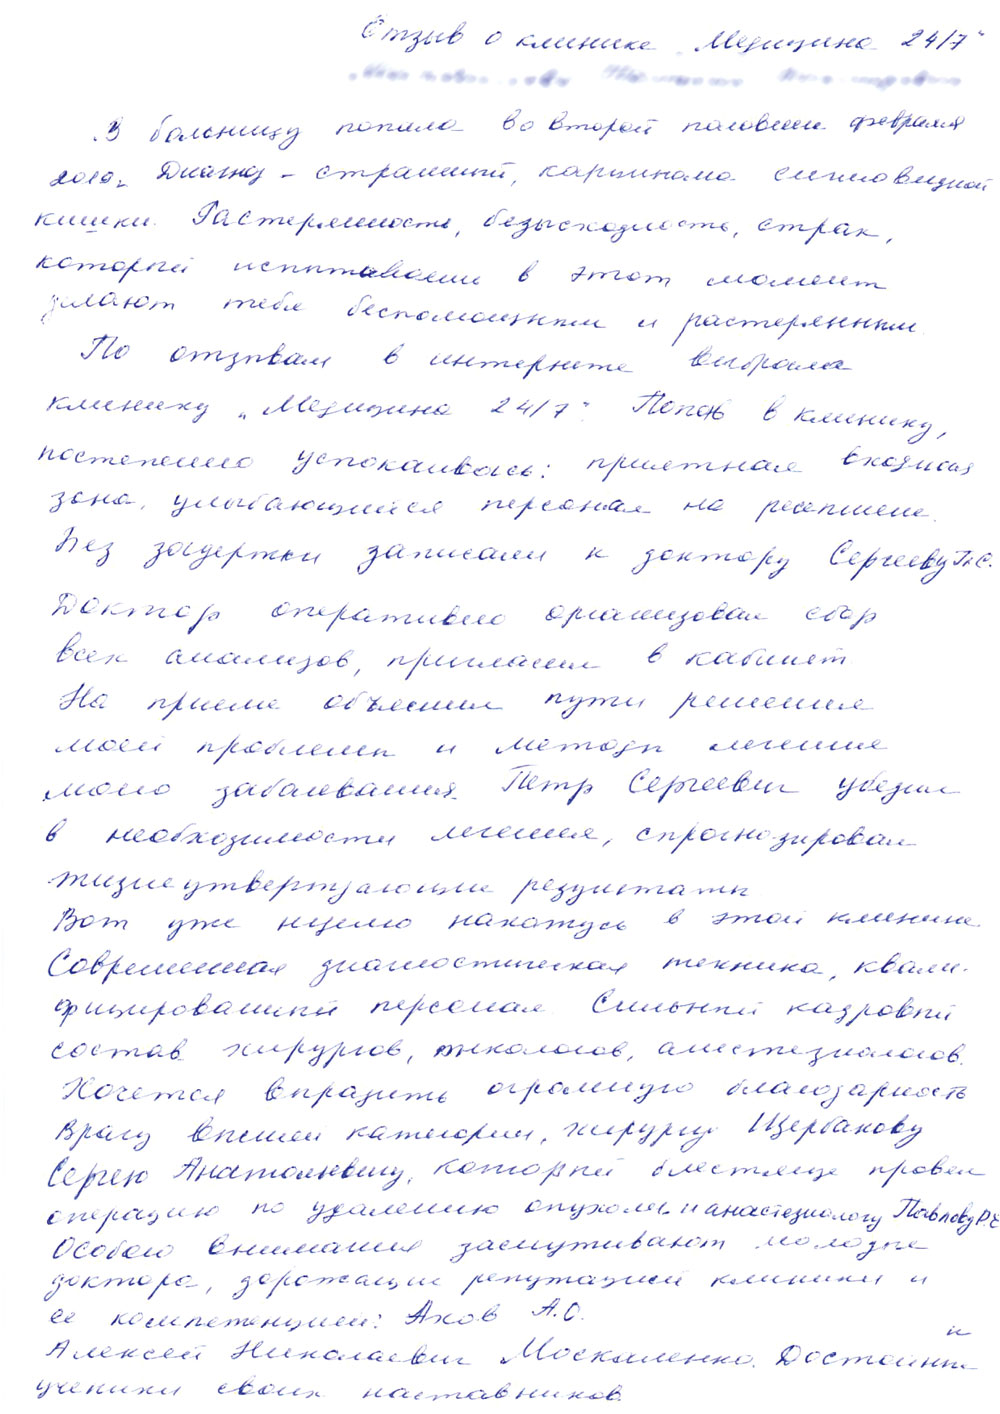 Отзыв о клинике „Медицина 24/7"
В больницу попала во второй половине февраля
2019г. Диагноз - страшный, карцинома сигмовидной
кишки. Растерянность, безысходность, страх,
который испытываешь в этот момент
делают тебя беспомощным и растерянным.
По отзывам в интернете выбрала
клинику „Медицина 24/7". Попав в клинику,
постепенно успокаиваюсь: приятная входная
зона, улыбающийся персонал на ресепшене.
Без задержки записали к доктору Сергееву П.С.
Доктор оперативно организовал сбор
всех анализов, пригласил в кабинет.
На приеме объяснил пути решения
моей проблемы и методы лечения
моего заболевания. Петр Сергеевич убедил
в необходимости лечения, спрогнозировал
жизнеутверждающие результаты
Вот уже неделю нахожусь в этой клинике.
Современная диагностическая техника, квали-
фицированный персонал. Сильный кадровый
состав хирургов, онкологов, анестезиологов.
Хочется выразить огромную благодарность
врачу высшей категории, хирургу Щербакову
Сергею Анатольевичу, который блестяще провел
операцию по удалению опухоли и анастезиологу Павлову Р.Е
Особого внимания заслуживают молодые
доктора, дорожащие репутацией клиники и
ее компетенцией: Ахов А.О. и
Алексей Николаевич Москаленко. Достойные
ученики своих наставников.